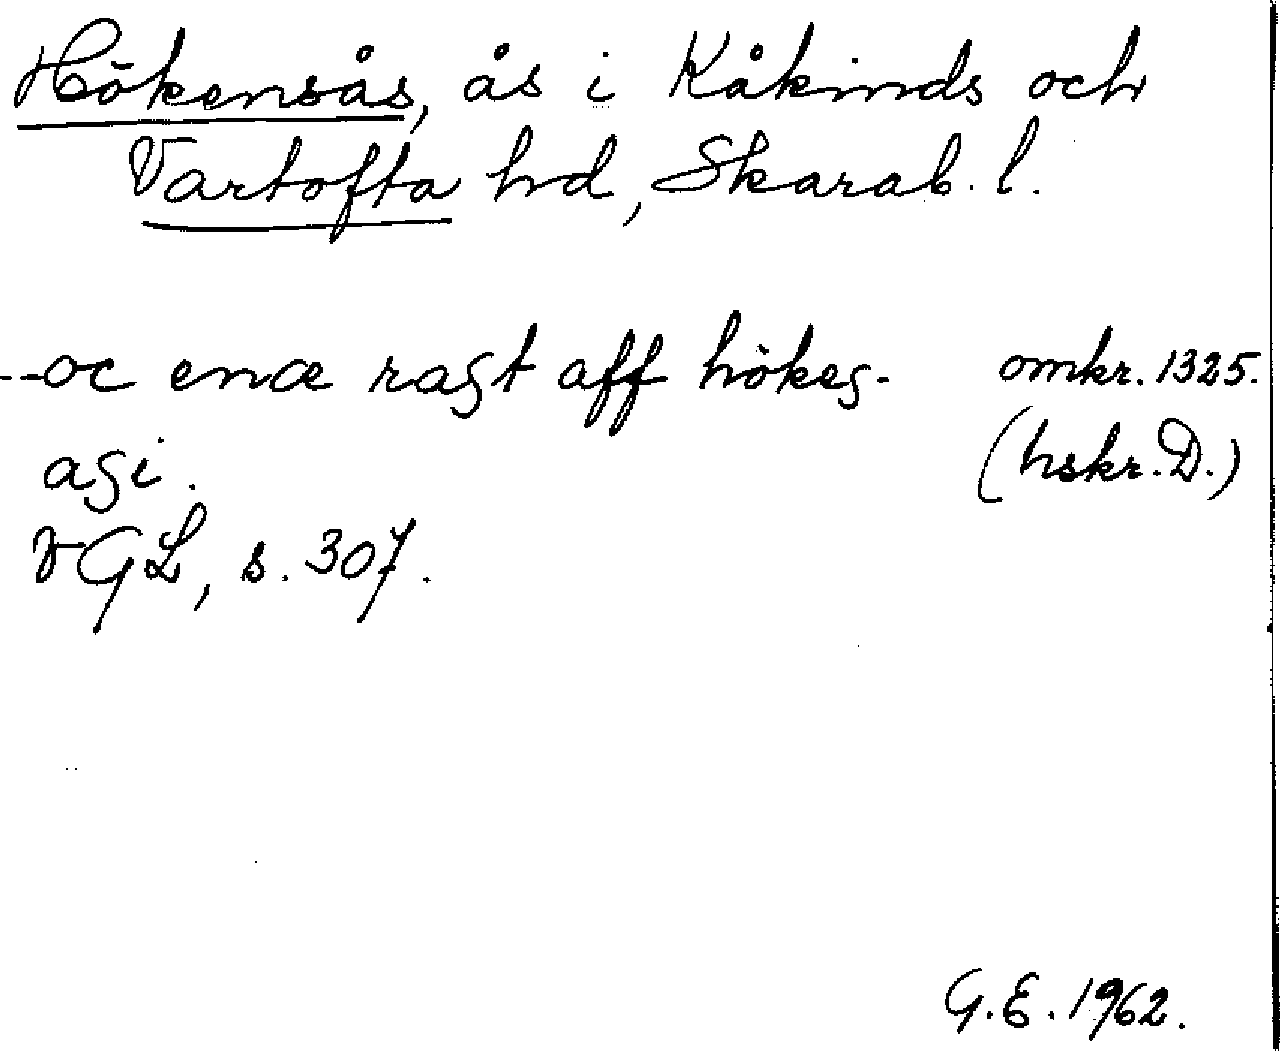 Hökensås, ås i Kåkinds och
Vartofta hd, Skarab. l.
--oc enæ raʒt aff hökeʒ- omkr. 1325.
aʒi. (hskr. D.)
VGL, s. 307.
G.E. 1962.